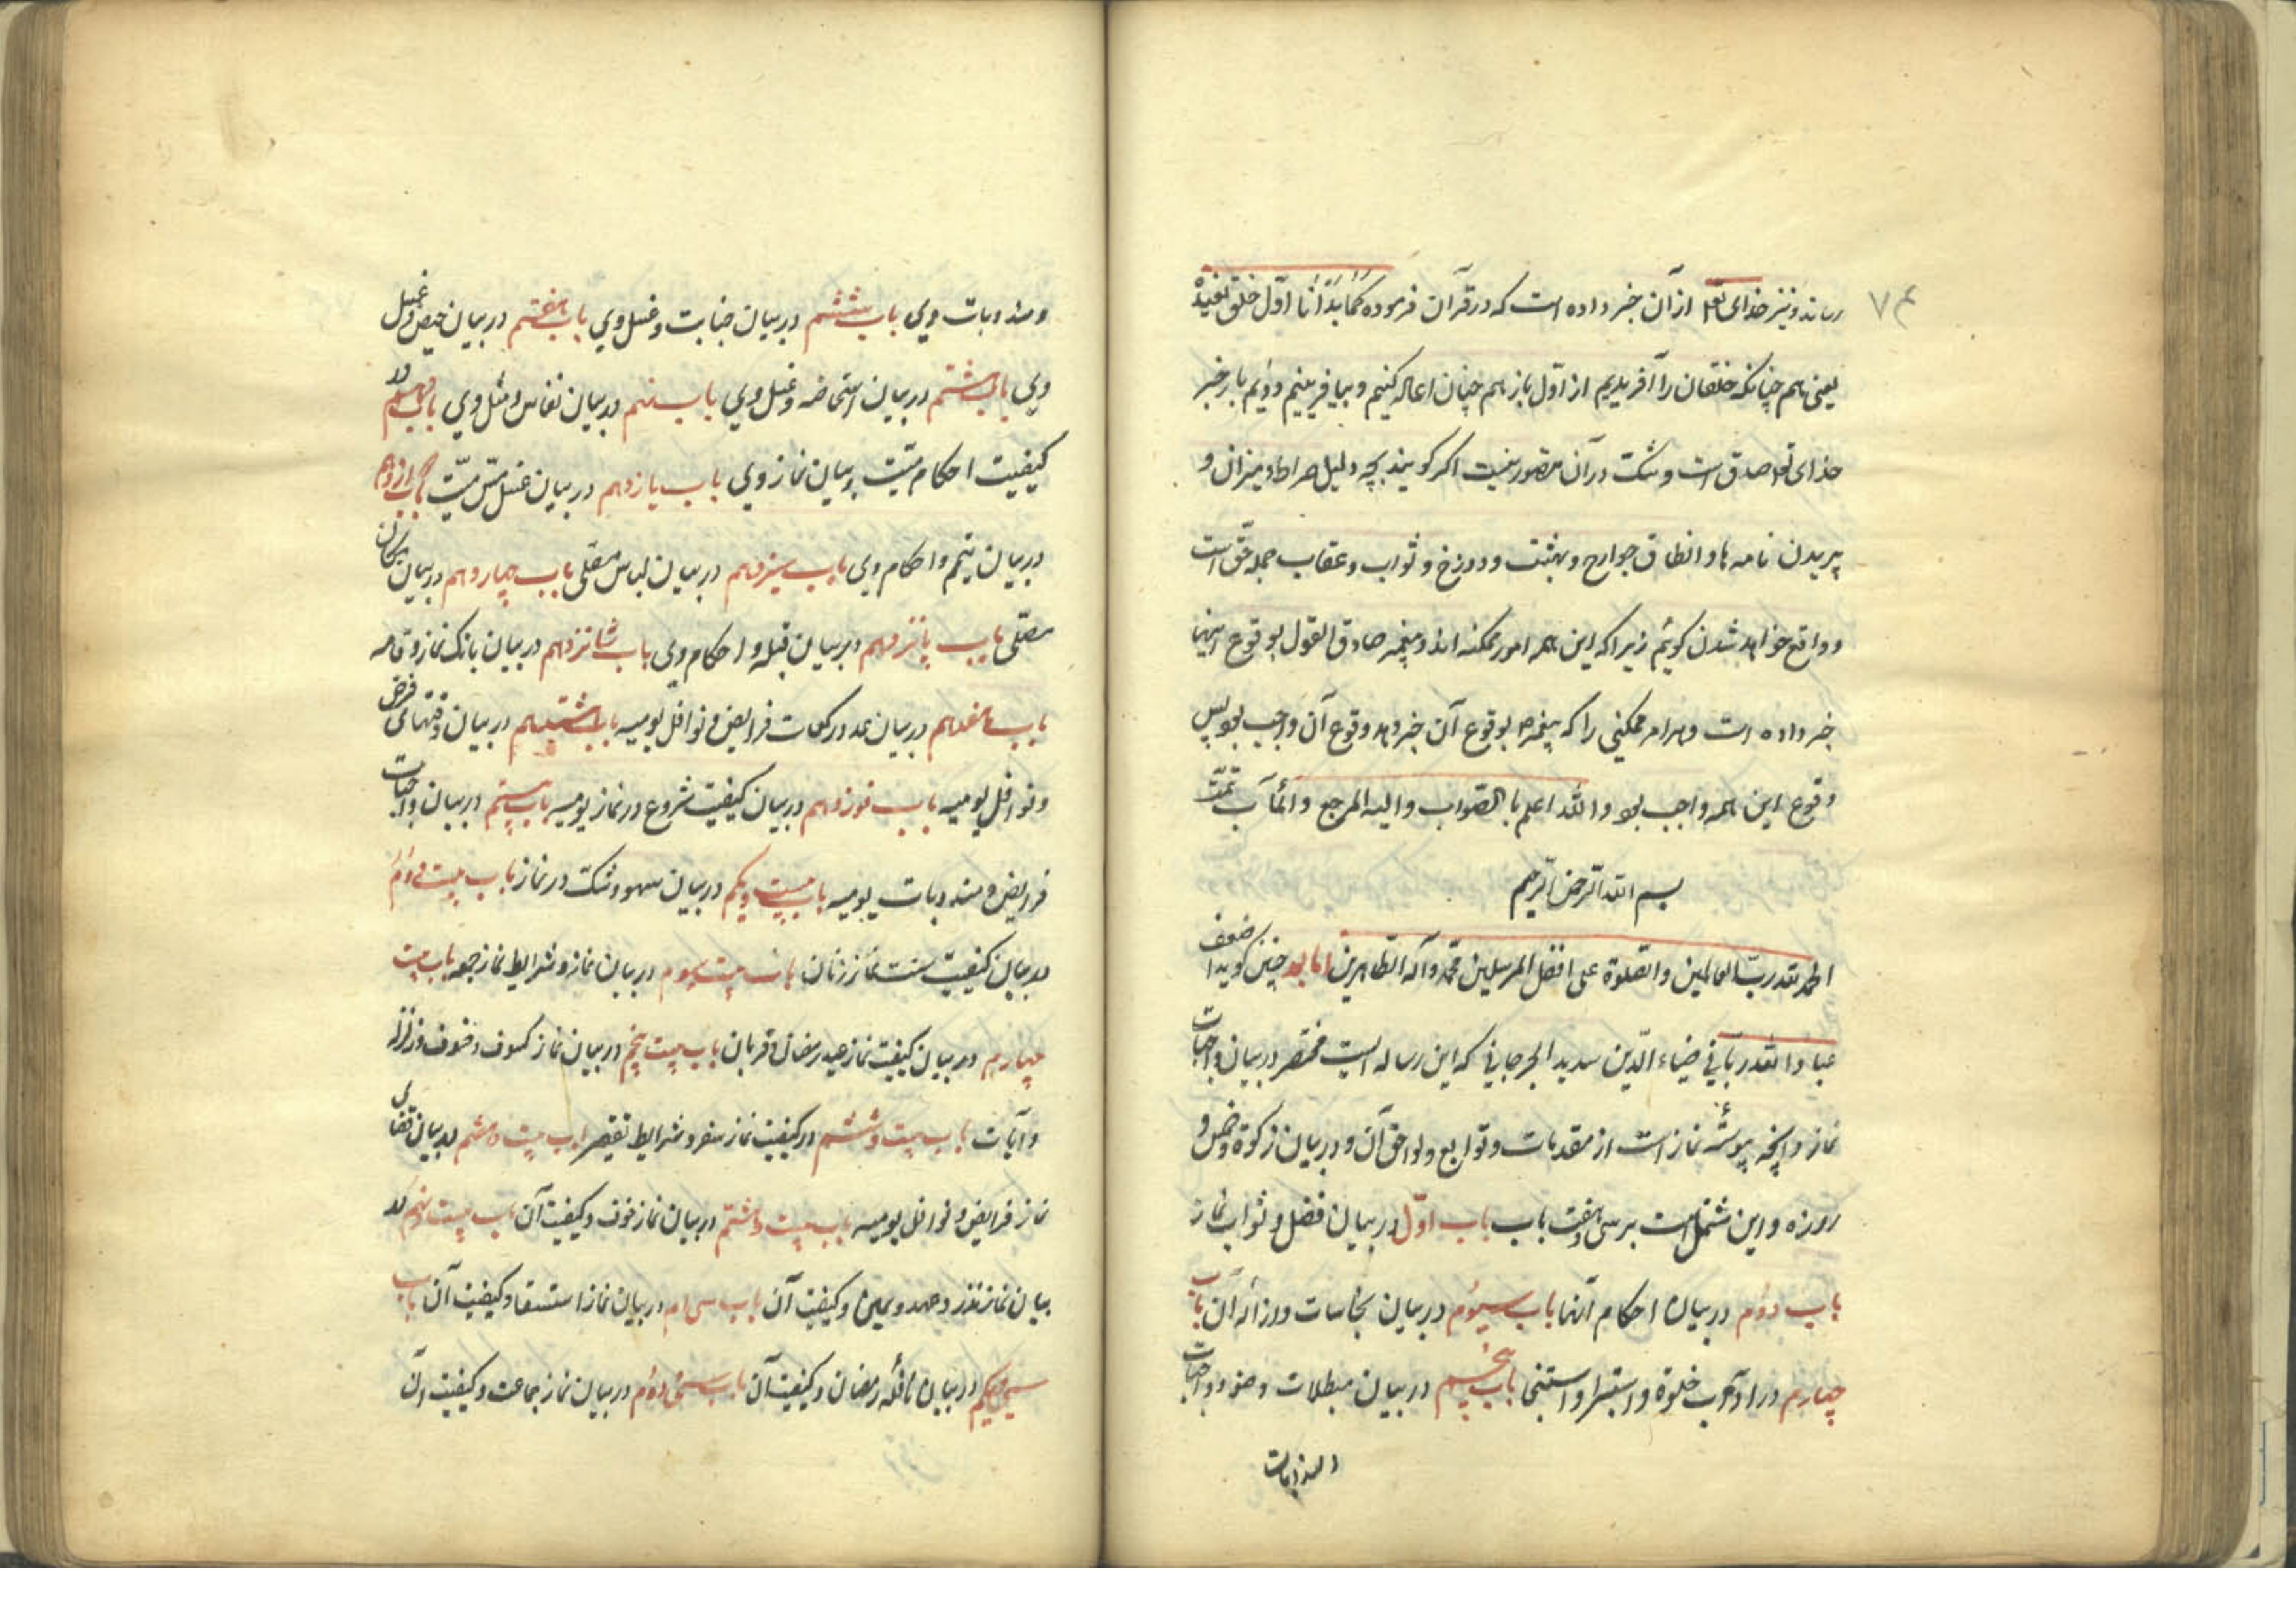 ۷۴
رساند و نیز خدای تعلا از آن خبر داده است که در قرآن فرموده کما بدأنا اوّل خلق نعیده
یعنی هم چنانکه خلقان را آفریدیم از اوّل باز هم چنان اعاله کنیم و بیافرینیم و دیم بار خبر
خدای تعلا صدق است و شک در آن متصور نیست اگر گویند بچه دلیل صراط و میزان و
پریدن نامه ها و انطاق جوارح و بهشت و دوزخ و ثواب و عقاب جمله حق است
و واقع خواهد شدن گوئیم زیرا که این همه امور ممکنه اند و پیغمبر صادق القول بوقوع اینها
خبر داده است و هر امر ممکنی را که پیغمبر بوقوع آن خبر دهد وقوع آن واجب بود پس
وقوع این همه واجب بود والله اعلم بالصواب والیه المرجع والمآب تمّت
بسم الله الرحمن الرحیم
الحمد لله رب العالمین والصلوة علی افضل المرسلین محمد وآله الطاهرین اما بعد چنین گوید اضعف
عباد الله ربانی ضیاء الدّین سدید الجرجانی که این رساله ایست مختصر در بیان واجبات
نماز و آنچه پیوسته نماز است از مقدمات و توابع و لواحق آن و در بیان زکوة و خمس و
روزه و این مشتمل است بر سی و هفت باب باب اوّل در بیان فضل و ثواب نماز
باب دوّم در بیان احکام آبها باب سیّوم در بیان نجاسات و ازاله آن باب
چهارم در آداب خلوة و استبرا و استنجا باب پنجم در بیان مبطلات وضو و واجبات
و مندوبات
و مندوبات وی باب ششم در بیان جنابت و غسل وی باب هفتم در بیان حیض و غسل
وی باب هشتم در بیان استحاضه و غسل وی باب نهم در بیان نفاس و غسل وی باب دهم در
کیفیت احکام میّت و بیان نماز وی باب یازدهم در بیان غسل مسّ میّت باب دوازدهم
در بیان تیمّم و احکام وی باب سیزدهم در بیان لباس مصلّی باب چهاردهم در بیان مکان
مصلّی باب پانزدهم در بیان قبله و احکام وی باب شانزدهم در بیان بانک نماز و قامه
باب هفدهم در بیان عدد رکعات فرایض و نوافل یومیه باب هشتدهم در بیان وقتهای فرض
و نوافل یومیه باب نوزدهم در بیان کیفیت شروع در نماز یومیه باب بیستم در بیان واجبات
فرایض و مندوبات یومیه باب بیست و یکم در بیان سهو و شک در نماز باب بیست و دوّم
در بیان کیفیّت سنت نماز زنان باب بیست سیوم در بیان نماز و شرایط نماز جمعه باب بیست
چهارم در بیان کیفیت نماز عید رمضان و قربان باب بیست پنجم در بیان نماز کسوف و خسوف و زلزله
و آیات باب بیست و ششم در کیفیت نماز سفر و شرایط تقصیر باب بیست و هفتم در بیان قضای
نماز فرایض و نوافل یومیه باب بیست و هشتم در بیان نماز خوف و کیفیت آن باب بیست و نهم در
بیان نماز نذر و عهد و یمین و کیفیت آن باب سی ام در بیان نماز استسقا و کیفیت آن باب
سی و یکم در بیان نافله رمضان و کیفیت آن باب سی و دوّم در بیان نماز جماعت و کیفیت آن